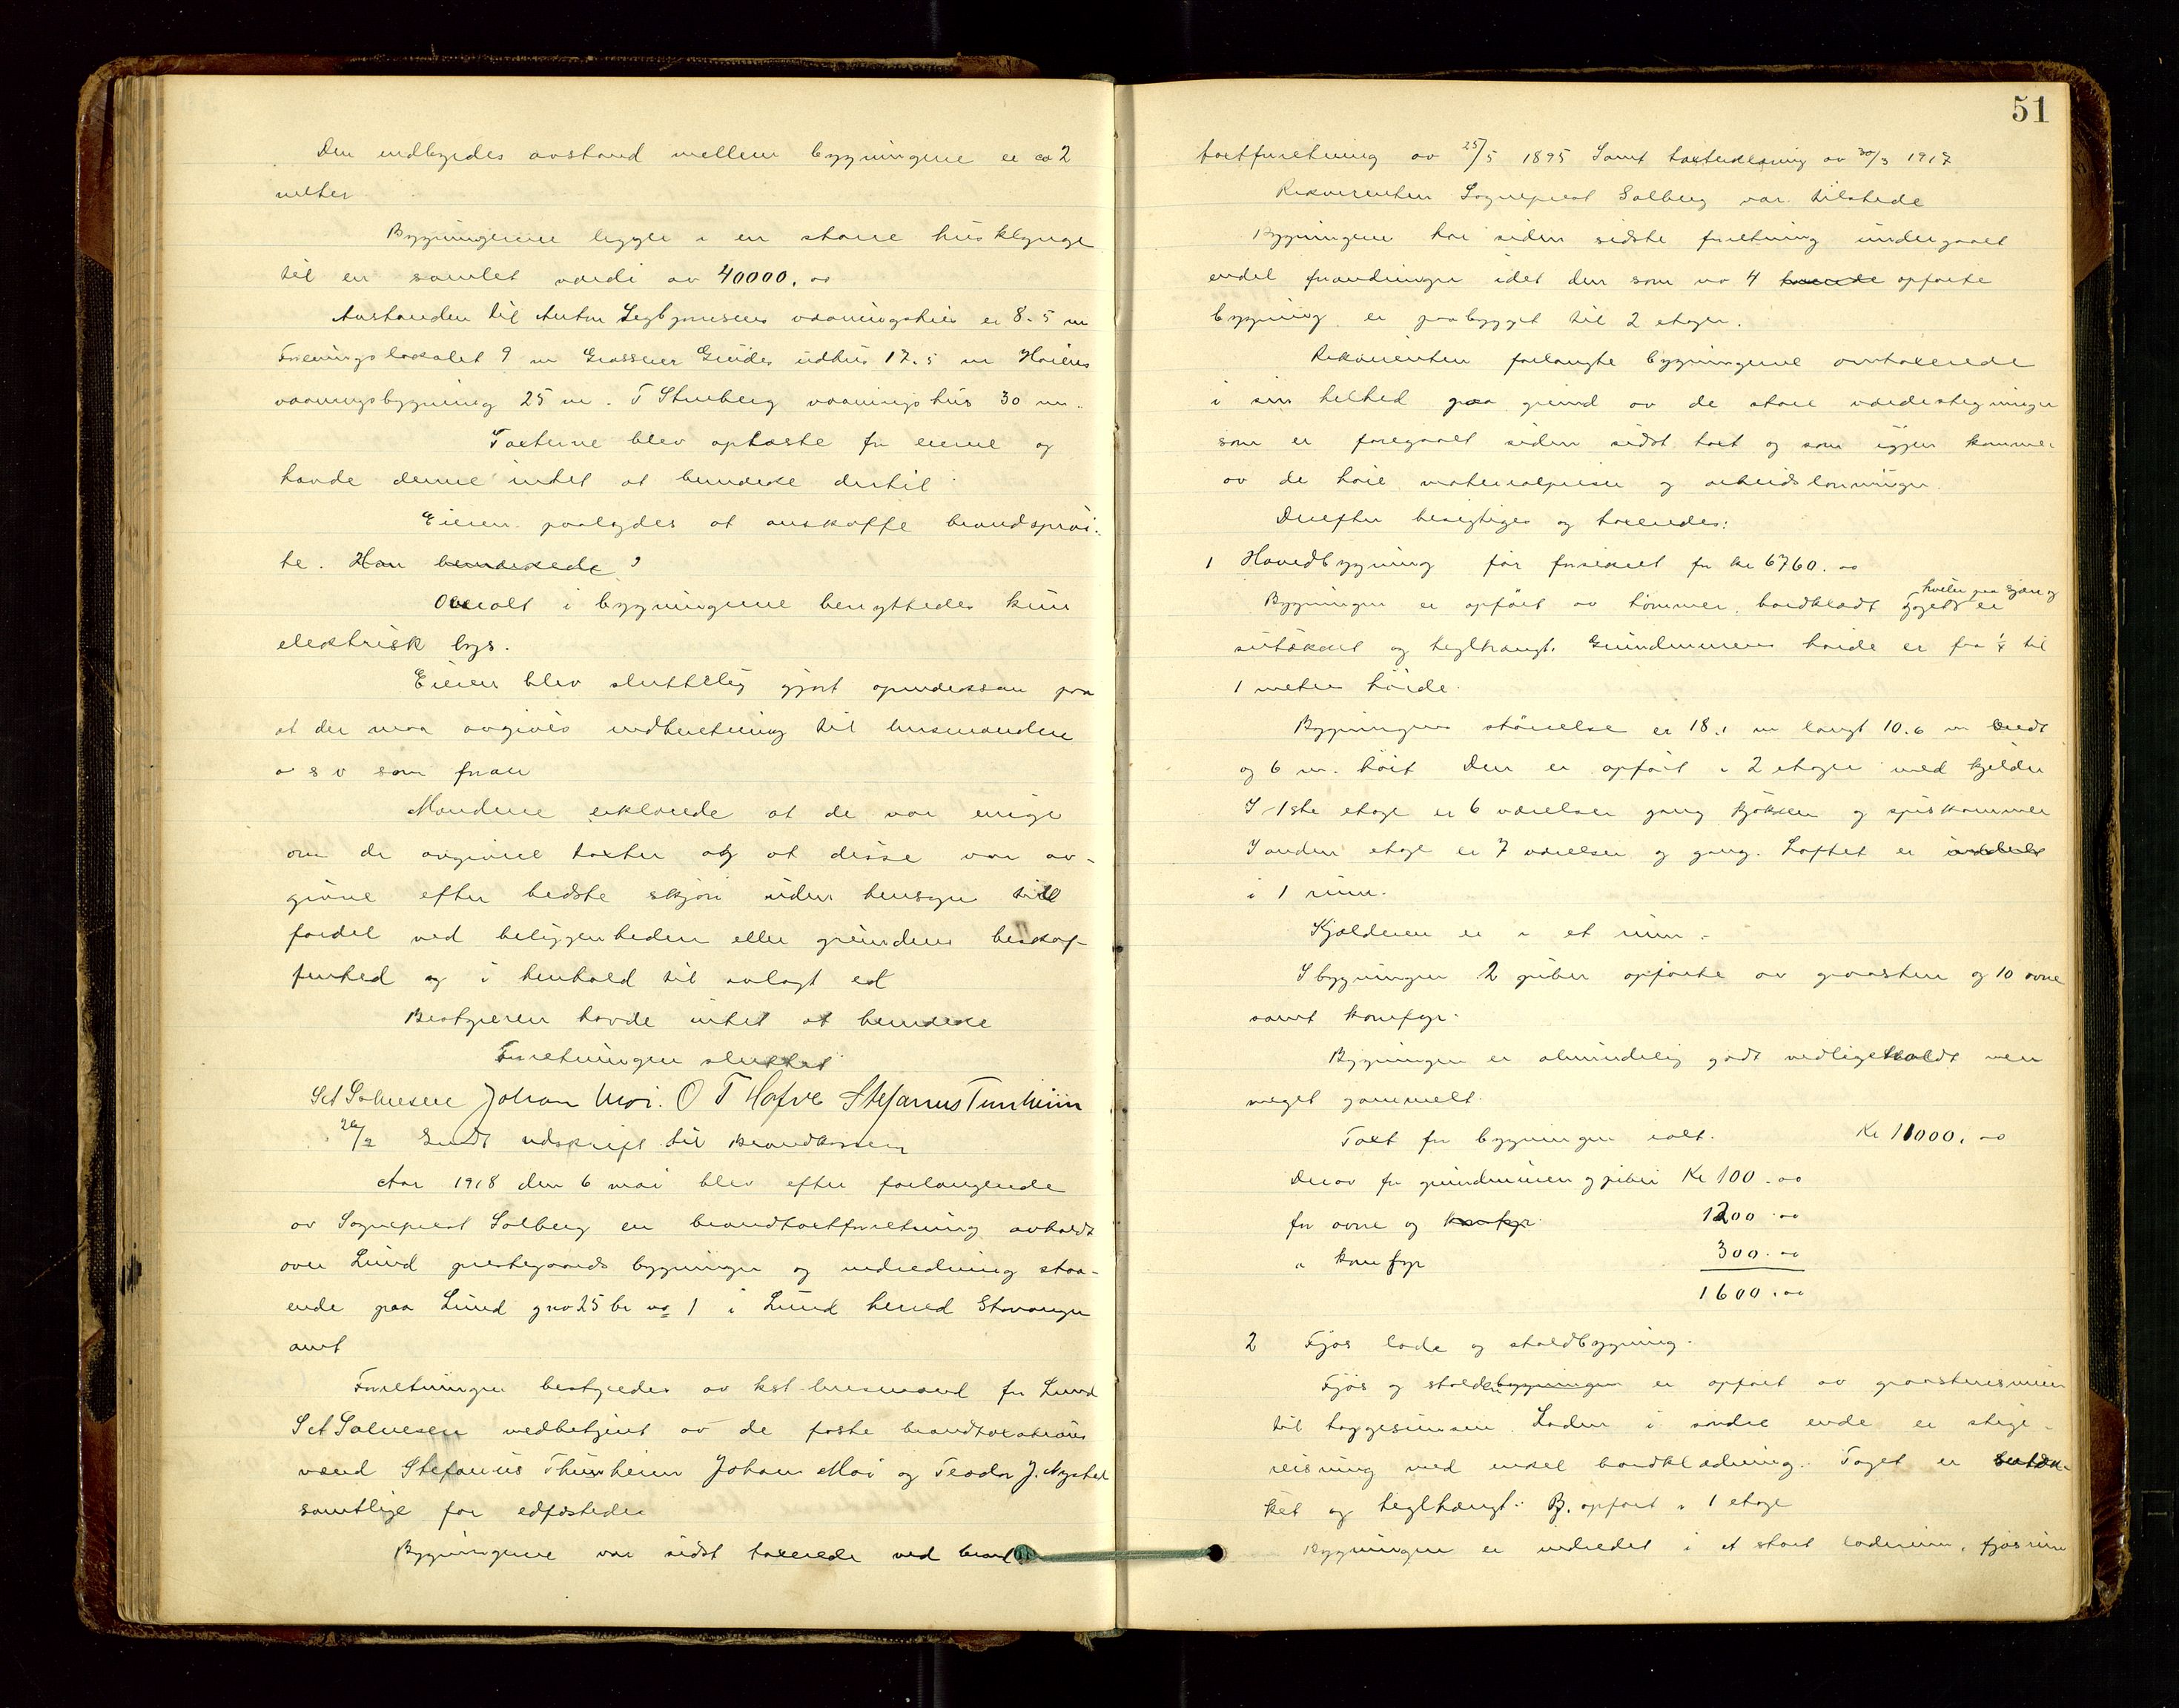 Den indbyrdes avstand mellem bygningene er ca 2
meter
Bygningerne ligger i en større husklynge
til en samlet værdi av 40000.00
Avstanden til Anton Legbjørnsens vaaningshus er 8.5 m
Foreningslokalet 9 m Grosserer Geides udhus 17.5 m
vaaningsbygning 25 m. T Stenberg vaaningshus 30 m.
Taxterne blev oplæste for eieren og
havde denne intet at bemerke dertil
Eieren paalydes at anskaffe brandsprøi-
te. Han bemærkede
Overalt i bygningerne benyttedes kun
elektrisk lys.
Eieren blev sluttelig gjort opmerksom paa
at der maa avgives indberetning til lensmanden
o s v som foran
Mændene erklærede at de var enige
om de avgivne taxter og at disse var av-
givne efter bedste skjøn uden hensyn till
fordel ved beliggenheden eller grundens beskaf-
fenhed og i henhold til avlagt ed
Bestyreren havde intet at bemerke
Forretningen sluttet
Set Salvesen Johan Moi. O T Hafve Stefanus Tunheim
26/2 Sendt udskrift til Brandkassen
Aar 1918 den 6 mai blev efter forlangende
av Sogneprest Solberg en brandtaxtforretning avholdt
over Lund prestegaards bygninger og indredning staa-
ende paa Lund gno 25 br no 1 i Lund herred Stavanger
amt
Forretningen bestyredes av kst lensmand for Lund
Set Salvesen medbetjent av de faste brandtaxations
mænd Stefanus Thunheim Johan Moi og Teodor J. Nysted
samtlige før edfæstede
Bygningerne var sidst taxerede ved brand
51
taxtforretning av 25/5 1895 Samt taxterklæring av 30/3 1917
Rekvirenten Sogneprest Solberg var tilstede
Bygningene har siden sidste forretning undergaaet
endel forandringer idet den som no 4 opførte
bygning er paabygget til 2 etager.
Rekvirenten forlangte bygningerne omtaxerede
i sin helhed paa grund av de store værdistigninger
som er foregaaet siden sidst taxt og som igjen kommer
av de høie materialpriser og arbeidslønninger.
Derefter besigtiges og taxerdes:
1 Hovedbygning før forsikret for kr 6760.00
Bygningen er opført av tømmer, bordklædt hviler paa Sjæng og taget er
sutækket og teglhængt. Grundmurens høide er fra 1/4 til
1 meters høide.
Bygningens størrelse er 18.1 m langt 10.6 m bredt
og 6 m. høit Den er opført i 2 etager med kjelder
I 1ste etage er 6 værelser gang kjøkken og spiskammer
I anden etage er 7 værelser og gang. Loftet er inddelt
i 1 rum.
Kjælderen er i et rum.
I bygningen 2 piber opførte av graasten og 10 ovne
samt komfyr.
Bygningen er almindelig godt vedligeholdt men
meget gammelt.
Taxt for bygningen ialt. Kr 11000.00
Derav for grundmuren og piber Kr 100.00
for ovne og komfyr 1200.00
" komfyr 300.00
1600.00
2 Fjøs lade og staldbygning.
Fjøs og stalden bygningen er opført av graastensmur
til taggesimsen. Laden i søndre ende er stige-
reisning med enkel bordklædning. Taget er sutæk-
ket og teglhængt. B. opført i 1 etage
Bygningen er indredet i et stort laderum, fjøsrum